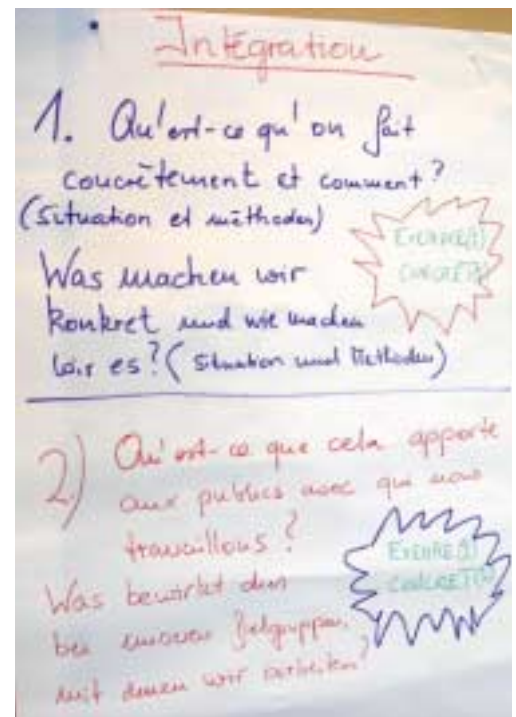 Intégration
1. Qu'est-ce qu'on fait
concrètement et comment?
(Situation et méthodes)
EXEMPLE(S)
CONCRET(S)
Was machen wir
konkret und wie machen
wir es? (Situation und Methoden)
2) Qu'est-ce que cela apporte
aux publics avec qui nous
travaillons?
EXEMPLE(S)
CONCRET(S)
Was bewirkt
bei unseren Zielgruppen,
mit denen wir arbeiten?